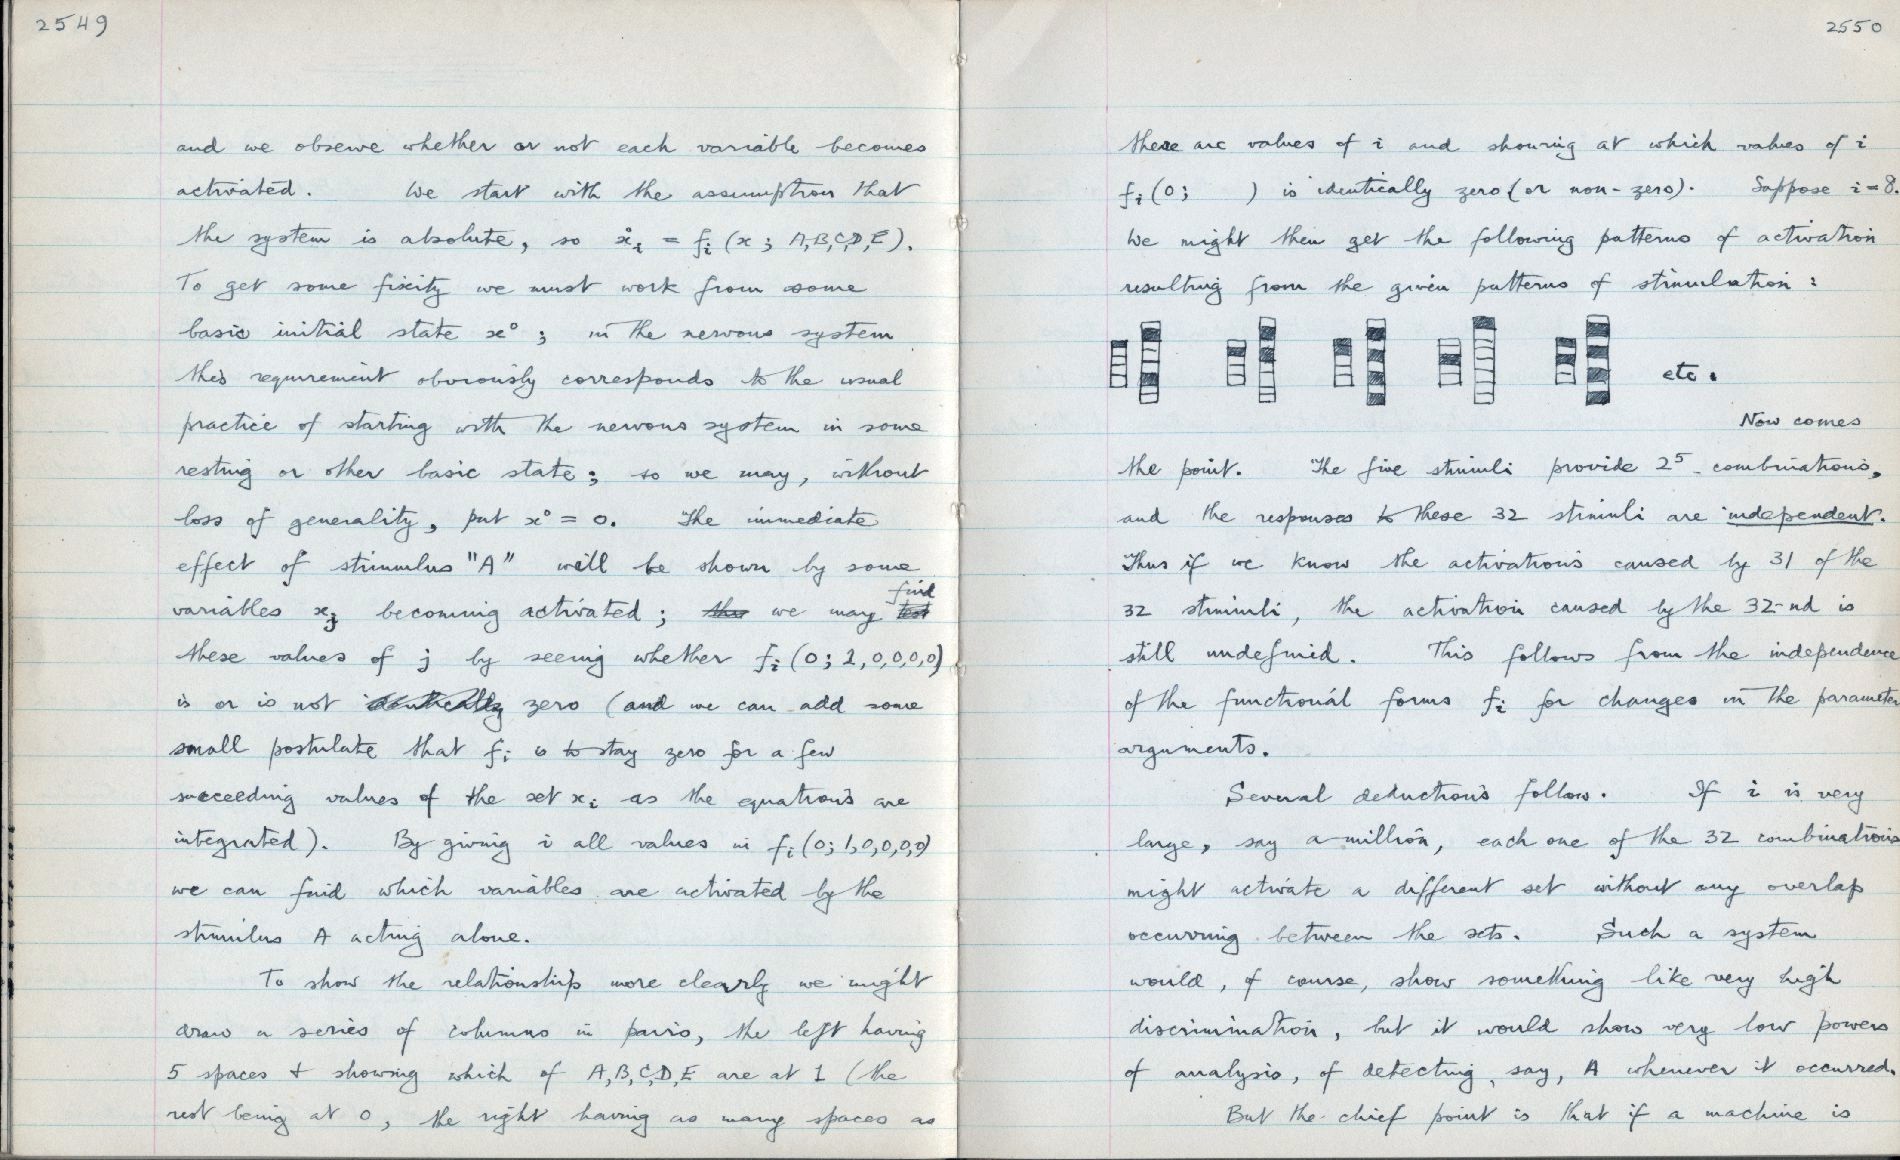 2549
and we observe whether or not each variable becomes
activated. We start with the assumption that
the system is absolute, so ẋᵢ = fᵢ (x; A,B,C,D,E).
To get some fixity we must work from some
basic initial state x°; in the nervous system
this requirement obviously corresponds to the usual
practice of starting with the nervous system in some
resting or other basic state; so we may, without
loss of generality, put x° = 0. The immediate
effect of stimulus "A" will be shown by some
variables xⱼ becoming activated; we may find
these values of j by seeing whether fᵢ (0; 1,0,0,0,0)
is or is not identically zero (and we can add some
small postulate that fᵢ is to stay zero for a few
succeeding values of the set xᵢ as the equations are
integrated). By giving i all values in fᵢ (0; 1,0,0,0,0)
we can find which variables are activated by the
stimulus A acting alone.
To show the relationship more clearly we might
draw a series of columns in pairs, the left having
5 spaces + showing which of A,B,C,D,E are at 1 (the
rest being at 0, the right having as many spaces as
2550
there are values of i and showing at which values of i
fᵢ (0; ) is identically zero (or non-zero). Suppose i = 8.
We might then get the following patterns of activation
resulting from the given patterns of stimulation:
etc.
Now comes
the point. The five stimuli provide 2⁵ combinations,
and the responses to these 32 stimuli are independent.
Thus if we know the activations caused by 31 of the
32 stimuli, the activation caused by the 32-nd is
still undefined. This follows from the independence
of the functional forms fᵢ for changes in the parameter
arguments.
Several deductions follow. If i is very
large, say a million, each one of the 32 combinations
might activate a different set without any overlap
occurring between the sets. Such a system
would, of course, show something like very high
discrimination, but it would show very low powers
of analysis, of detecting, say, A whenever it occurred.
But the chief point is that if a machine is